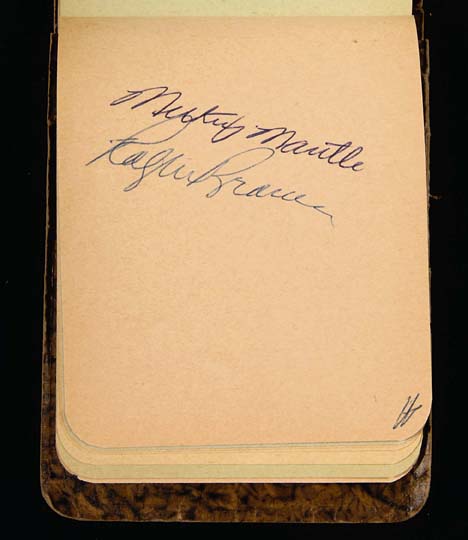 Mickey Mantle
Ralph Branca